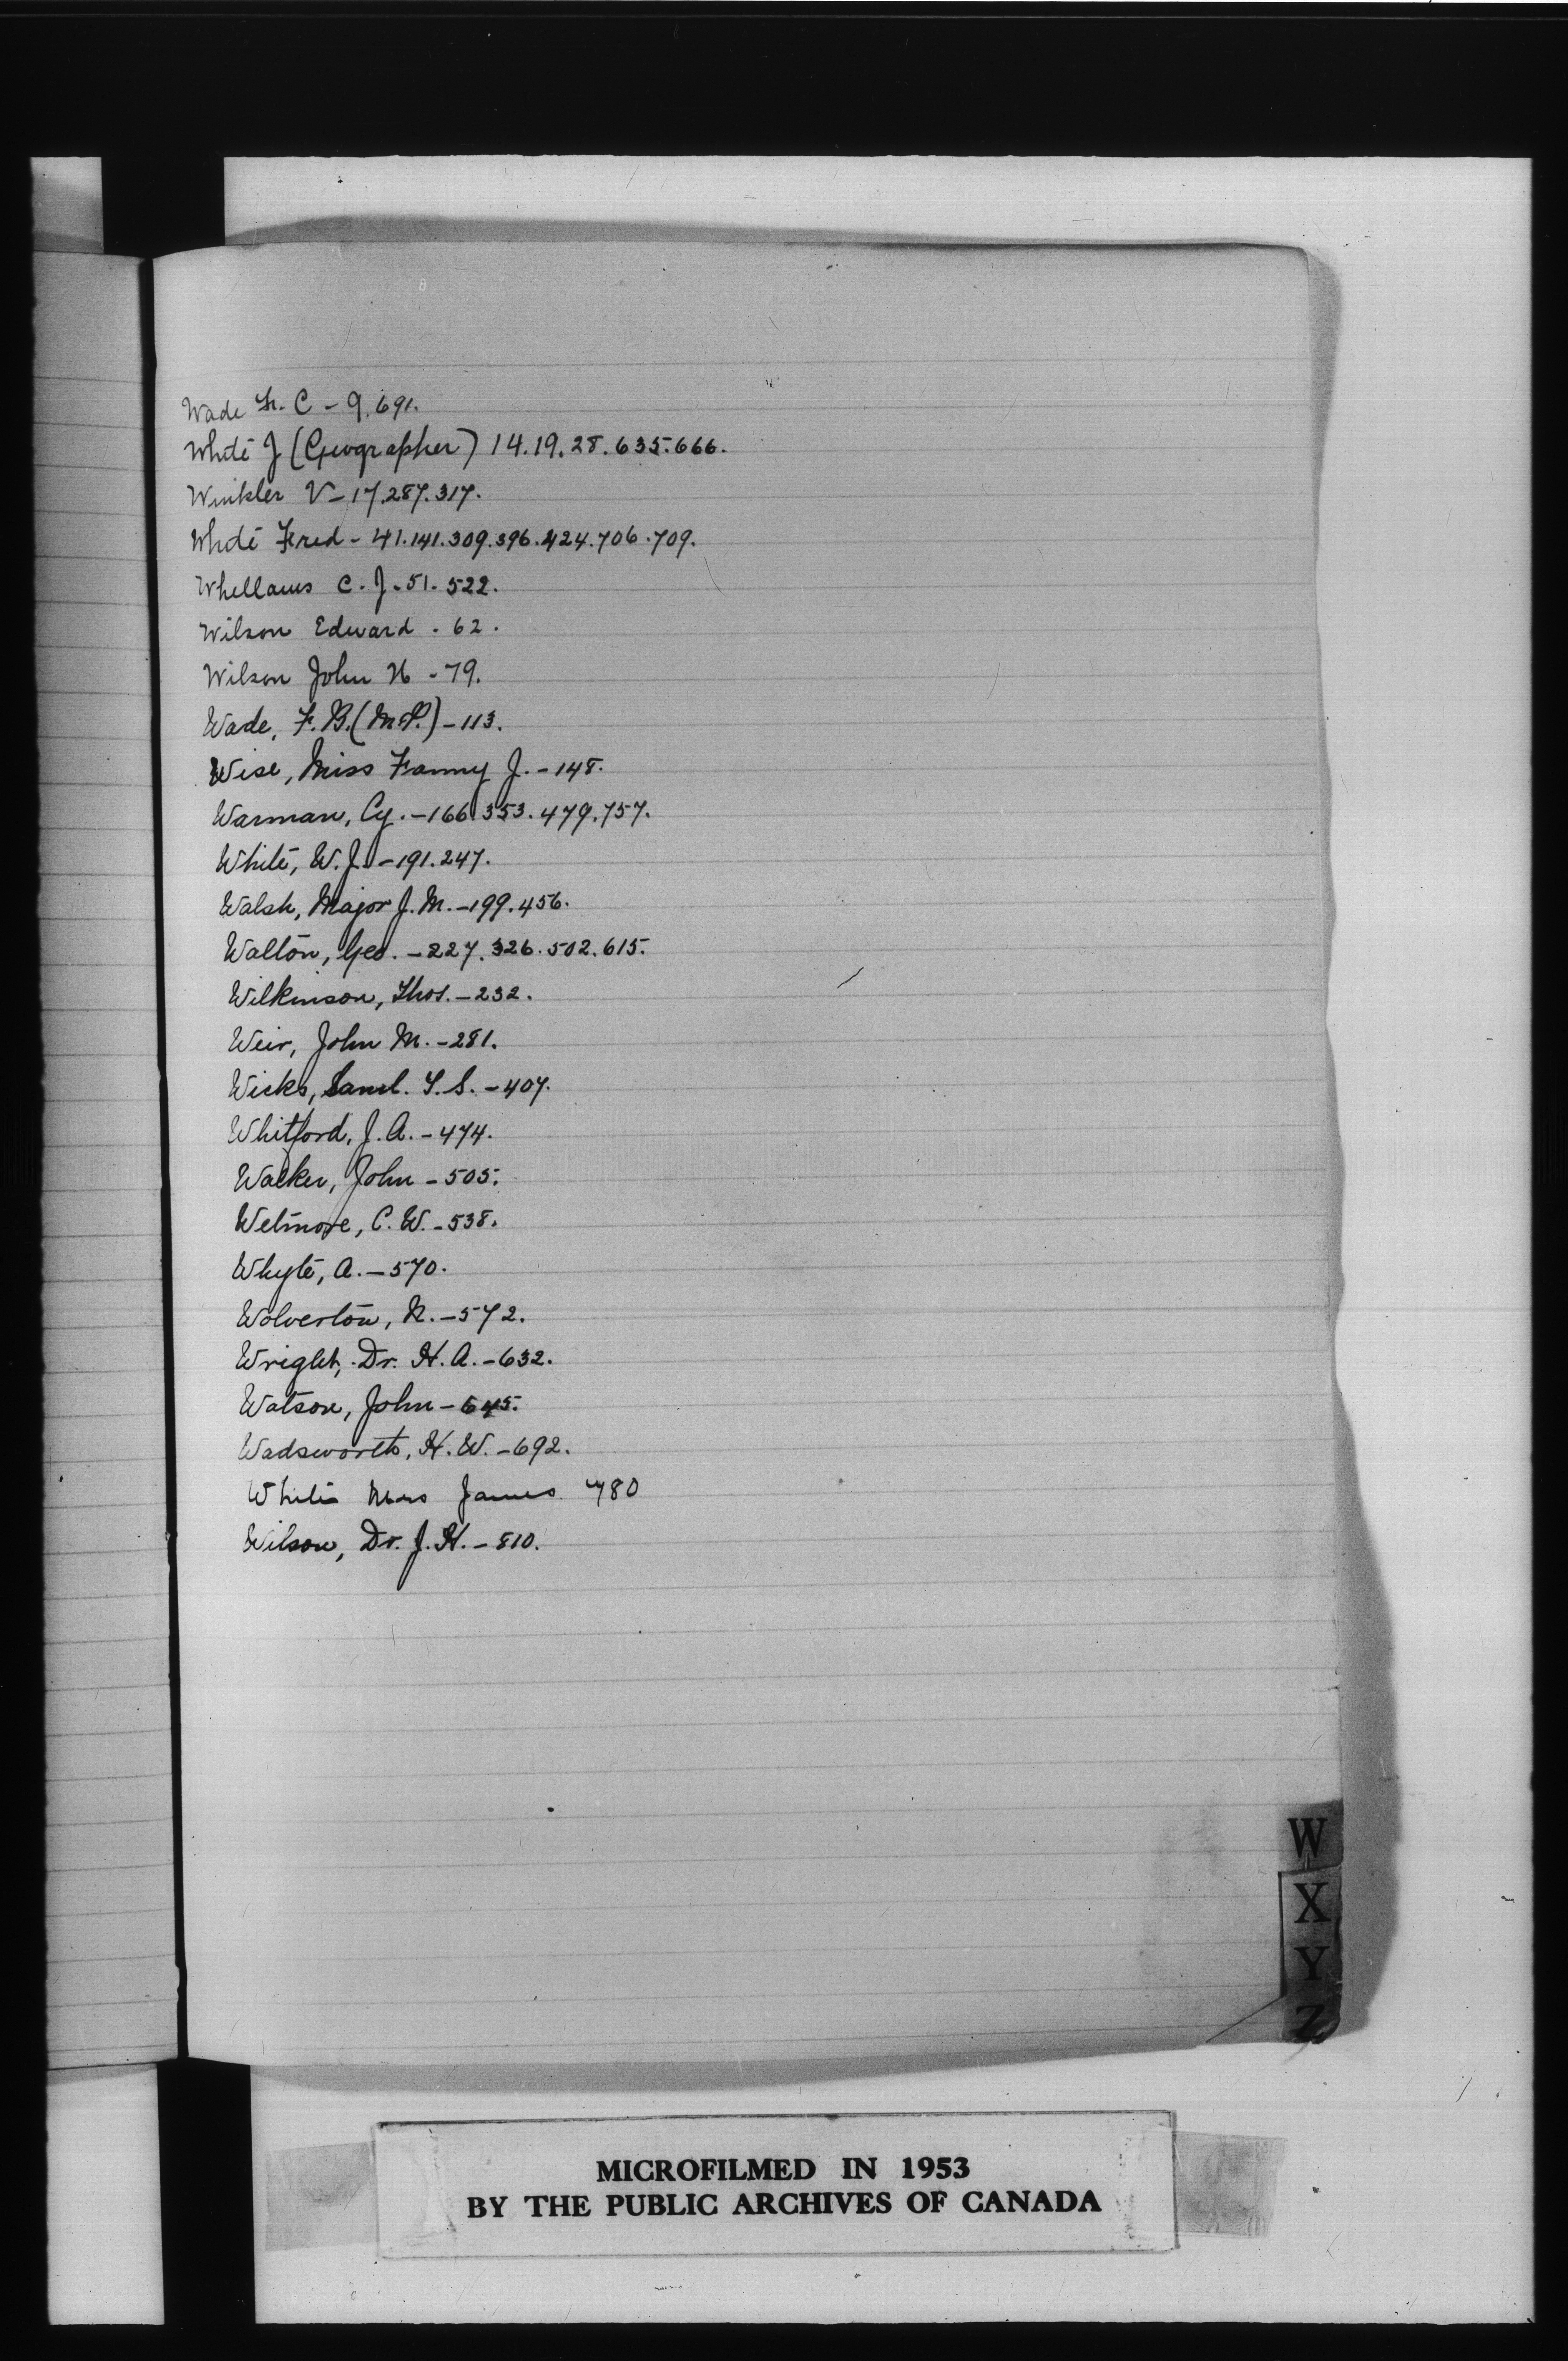 Wade F. C - 9.691.
White J (Geographer) 14.19.28.635.666.
Winkler V - 17.287.317.
White Fred - 41.141.309.396.424.706.709.
Whellams C. J. 51. 522.
Wilson Edward . 62.
Wilson John H - 79.
Wade, F. B. (M.P.) - 113.
Wise, Miss Fanny J. - 148.
Warman, Cy. - 166.353.479.757.
White, W. J. - 191.247.
Walsh, Major J. M. - 199.456.
Walton, Geo. - 227.326.502.615.
Wilkinson, Thos. - 232.
Weir, John M. - 281.
Wicks, Saml. T. S. - 407.
Whitford, J. A. - 474.
Walker, John - 505.
Wetmore, C. W. - 538.
Whyte, A. - 570.
Wolverton, N. - 572.
Wright, Dr. H. A. - 632.
Watson, John - 645.
Wadsworth, H. W. - 692.
White Mrs James 780
Wilson, Dr. J. H. - 810.
W
X
Y
Z
MICROFILMED IN 1953
BY THE PUBLIC ARCHIVES OF CANADA